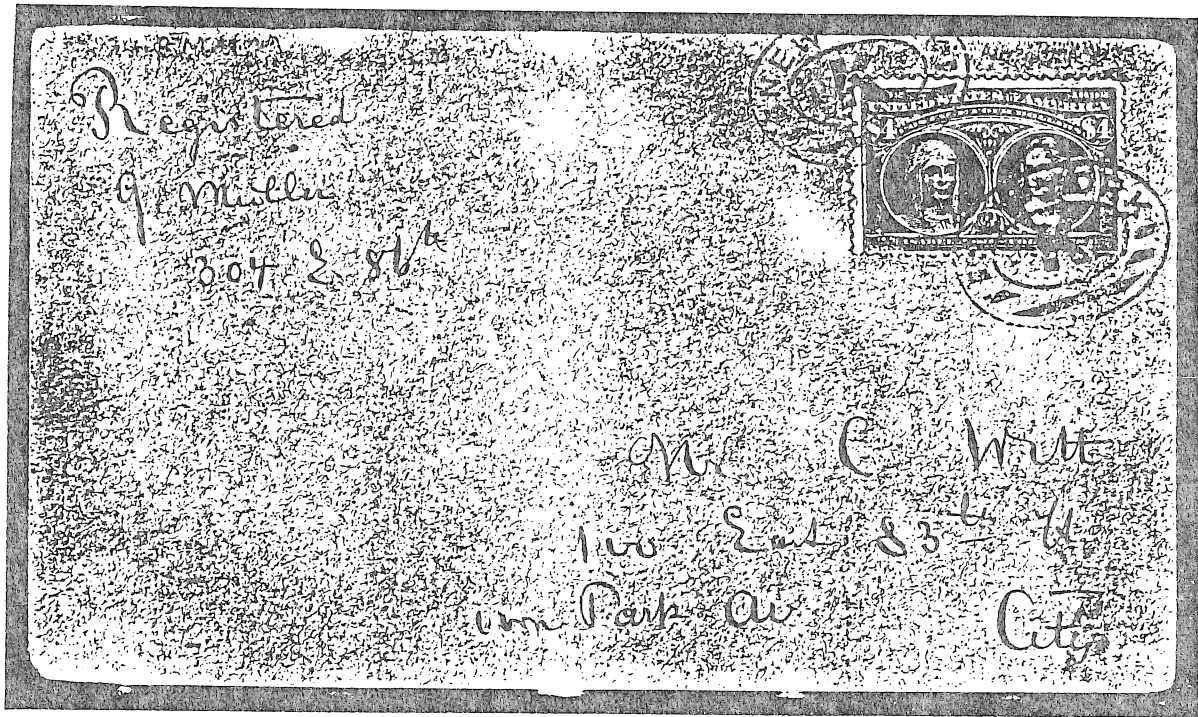 Registered
G. Muller
304 E 86th
UNITED STATES OF AMERICA
$4 $4
Mr C Witt
100 East 83th St
Park Av City